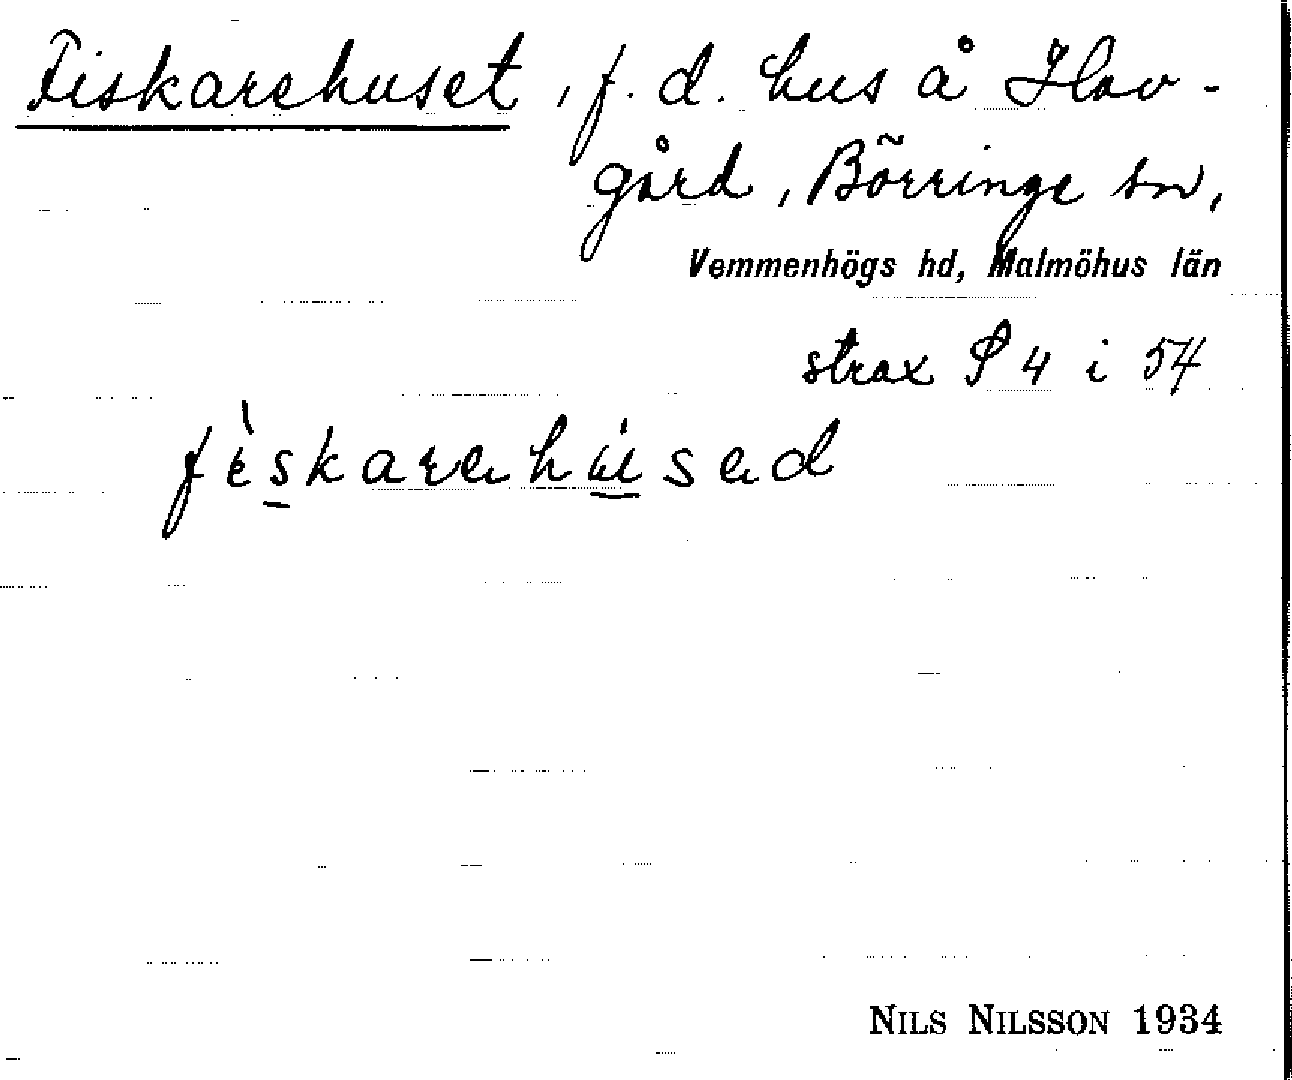 Fiskarehuset, f. d. hus å Hav-
gård, Börringe sn,
Vemmenhögs hd, Malmöhus län
strax S 4 i 54
fèskarehu̇sed
NILS NILSSON 1934